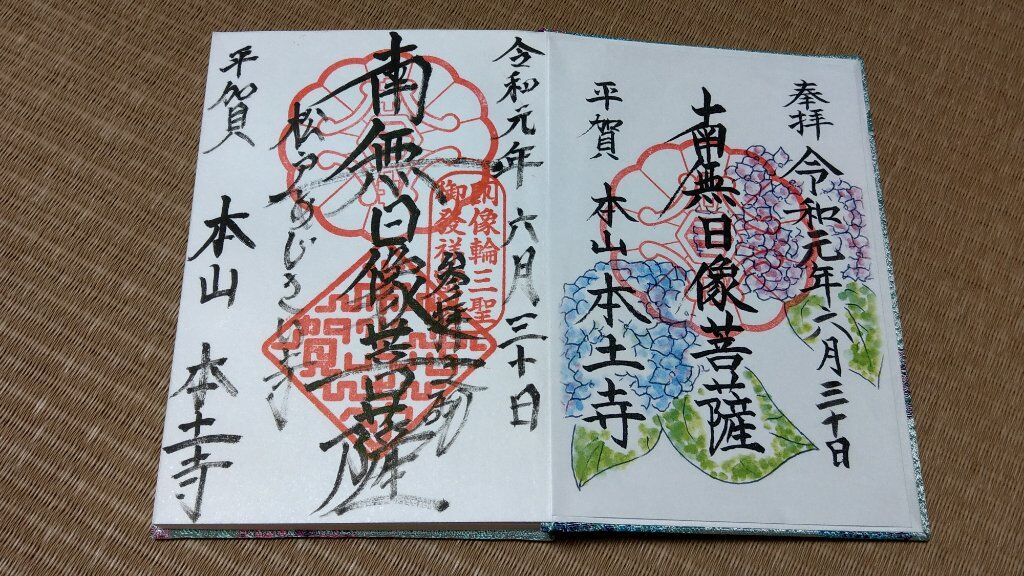 奉拝
令和元年六月三十日
南無日像菩薩
平賀
本山本土寺
令和元年六月三十日
朗像輪三聖
御發祥
参拝
南無日像菩薩
松戸あじさい寺
平賀
本山
本土寺